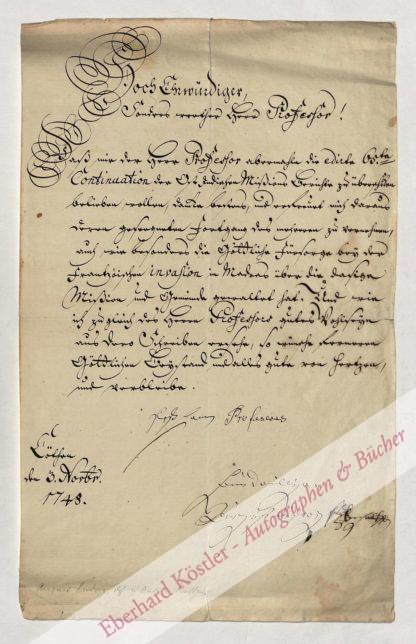 Hoch Ehrwürdiger,
Sonders werther Herr Professor!
Daß mir der Herr Professor abermahls die edirte 65.te
Continuation der Ost-Indischen Missions Berichte zu überschicken
belieben wollen, dancke bestens, und erfreuet mich daraus
deren gesegneten Fortgang des mehreren zu vernehmen,
auch wie besonders die Göttliche Fürsorge bey der
Frantzösischen invasion in Madras über die dasige
Mission und Gemeinde gewaltet hat. Und wie
ich zugleich des Herrn Professors gutes Wohlseyn
aus dero Schreiben ersehe, so wünsche ferneren
Göttlichen Beystand und alles gute von Hertzen,
und verbleibe.
Professors
Cöthen
den 3. Novbr.
1748.
Eberhard Köstler - Autographen & Bücher